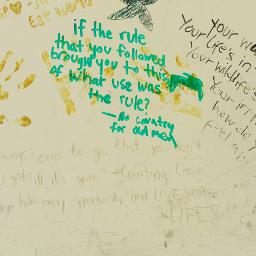 Eat World
if the rule
that you followed
brought you to this
of what use was
the rule?
— No country
for old men
Your wa
Your life's in
Your wildlife's
Your irri
how do
feel
always seem to go, that you don't
got till it's gone" -Counting Crows
take every opportunity and LIVE your
LIFE!